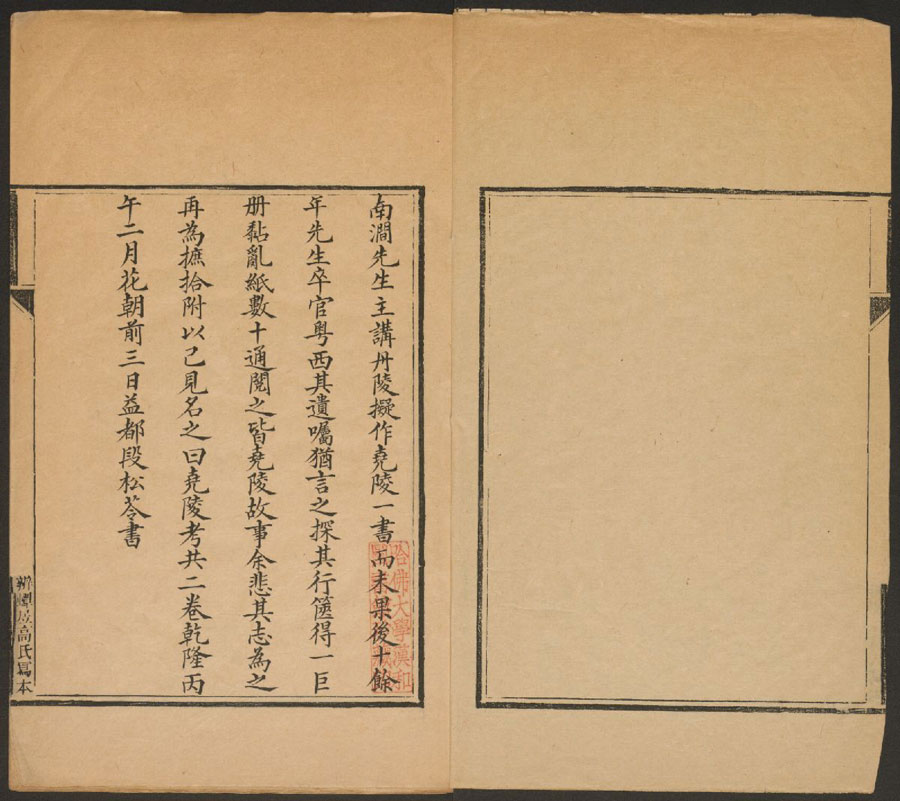 南澗先生主講丹陵擬作堯陵一書而未果後十餘
年先生卒官粤西其遺囑猶言之探其行篋得一巨
册黏亂紙數十通閱之皆堯陵故事余悲其志為之
再為摭拾附以己見名之曰堯陵考共二卷乾隆丙
午二月花朝前三日益都段松苓書
高氏寫本
哈佛大學漢和